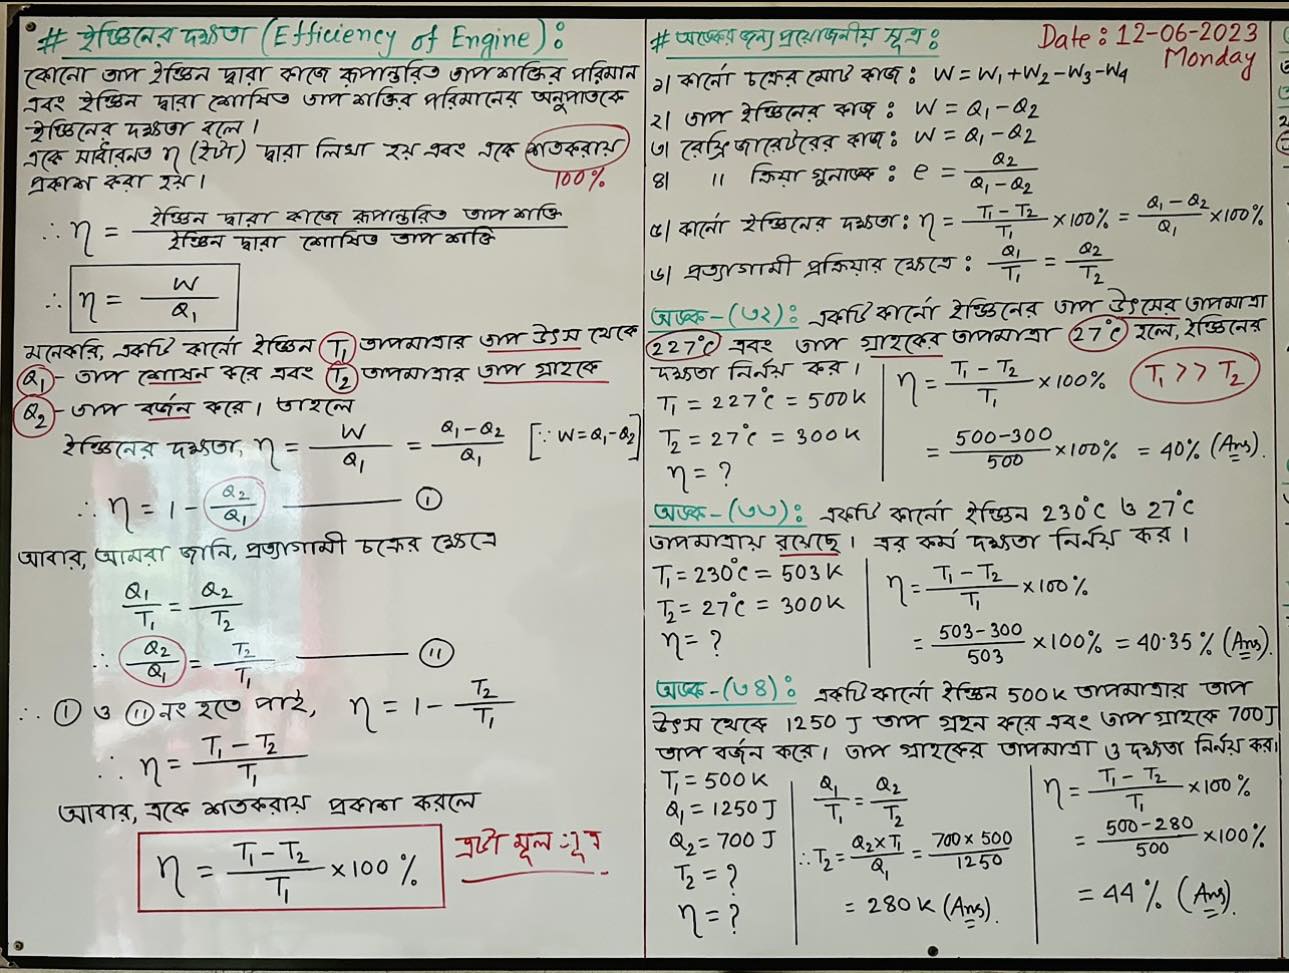 # ইঞ্জিনের দক্ষতা (Efficiency of Engine) :
কোনো তাপ ইঞ্জিন দ্বারা কাজে রূপান্তরিত তাপ শক্তির পরিমান
এবং ইঞ্জিন দ্বারা শোষিত তাপ শক্তির পরিমানের অনুপাতকে
ইঞ্জিনের দক্ষতা বলে।
একে সাধারনত η (ইটা) দ্বারা লিখা হয় এবং একে শতকরায়
প্রকাশ করা হয়। 100%
∴ η = ইঞ্জিন দ্বারা কাজে রূপান্তরিত তাপ শক্তি / ইঞ্জিন দ্বারা শোষিত তাপ শক্তি
∴ η = W / Q₁
মনেকরি, একটি কার্নো ইঞ্জিন T₁ তাপমাত্রার তাপ উৎস থেকে
Q₁ - তাপ শোষন করে এবং T₂ তাপমাত্রার তাপ গ্রাহকে
Q₂ - তাপ বর্জন করে। তাহলে
ইঞ্জিনের দক্ষতা, η = W / Q₁ = Q₁ - Q₂ / Q₁ [∵ W = Q₁ - Q₂]
∴ η = 1 - Q₂ / Q₁ ——— (i)
আবার, আমরা জানি, প্রত্যাগামী চক্রের ক্ষেত্রে
Q₁ / T₁ = Q₂ / T₂
∴ Q₂ / Q₁ = T₂ / T₁ ——— (ii)
∴ (i) ও (ii) নং হতে পাই, η = 1 - T₂ / T₁
∴ η = T₁ - T₂ / T₁
আবার, একে শতকরায় প্রকাশ করলে
η = T₁ - T₂ / T₁ × 100 % এটা মূল সূত্র
# অংকের জন্য প্রয়োজনীয় সূত্র : Date : 12-06-2023
Monday
১। কার্নো চক্রের মোট কাজ : W = W₁ + W₂ - W₃ - W₄
২। তাপ ইঞ্জিনের কাজ : W = Q₁ - Q₂
৩। রেফ্রিজারেটরের কাজ : W = Q₁ - Q₂
৪। " ক্রিয়া গুনাঙ্ক : e = Q₂ / Q₁ - Q₂
৫। কার্নো ইঞ্জিনের দক্ষতা : η = T₁ - T₂ / T₁ × 100% = Q₁ - Q₂ / Q₁ × 100%
৬। প্রত্যাগামী প্রক্রিয়ার ক্ষেত্রে : Q₁ / T₁ = Q₂ / T₂
অংক - (৩২) : একটি কার্নো ইঞ্জিনের তাপ উৎসের তাপমাত্রা
227°C এবং তাপ গ্রাহকের তাপমাত্রা 27°C হলে, ইঞ্জিনের
দক্ষতা নির্নয় কর।
T₁ = 227°C = 500 K
T₂ = 27°C = 300 K
η = ?
η = T₁ - T₂ / T₁ × 100% T₁ >> T₂
= 500 - 300 / 500 × 100% = 40% (Ans).
অংক - (৩৩) : একটি কার্নো ইঞ্জিন 230°C ও 27°C
তাপমাত্রায় রয়েছে। এর কর্ম দক্ষতা নির্নয় কর।
T₁ = 230°C = 503 K
T₂ = 27°C = 300 K
η = ?
η = T₁ - T₂ / T₁ × 100%
= 503 - 300 / 503 × 100% = 40.35 % (Ans).
অংক - (৩৪) : একটি কার্নো ইঞ্জিন 500 K তাপমাত্রার তাপ
উৎস থেকে 1250 J তাপ গ্রহন করে এবং তাপ গ্রাহকে 700 J
তাপ বর্জন করে। তাপ গ্রাহকের তাপমাত্রা ও দক্ষতা নির্নয় কর।
T₁ = 500 K
Q₁ = 1250 J
Q₂ = 700 J
T₂ = ?
η = ?
Q₁ / T₁ = Q₂ / T₂
∴ T₂ = Q₂ × T₁ / Q₁ = 700 × 500 / 1250
= 280 K (Ans).
η = T₁ - T₂ / T₁ × 100%
= 500 - 280 / 500 × 100%
= 44 % (Ans).